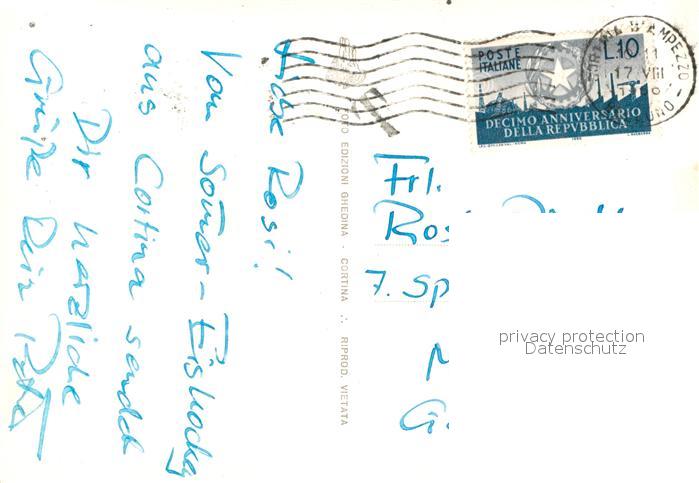 Liebe Rosi!
Vom Somer-Eishockey
aus Cortina sendet
Dir herzliche
Grüße Dein Peter
FOTO EDIZIONI GHEDINA - CORTINA ∴ RIPROD. VIETATA
POSTE
ITALIANE
L.10
DECIMO ANNIVERSARIO
DELLA REPVBBLICA
1956
CORTINA D'AMPEZZO
17 VIII
Frl.
Ros
7. Sp
privacy protection
Datenschutz